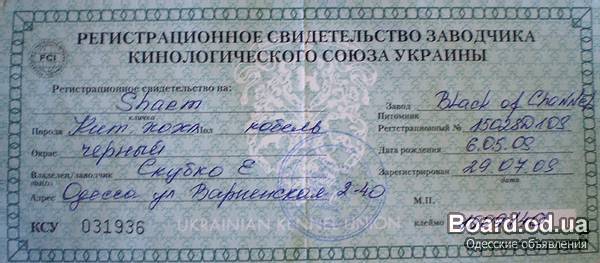 РЕГИСТРАЦИОННОЕ СВИДЕТЕЛЬСТВО ЗАВОДЧИКА
КИНОЛОГИЧЕСКОГО СОЮЗА УКРАИНЫ
FCI
Регистрационное свидетельство на:
Shaem
кличка
Завод Black of Channel
Питомник
Порода Кит. хохл Пол кобель
Регстрационный № 15028D109
Окрас черный
Дата рождения 6.05.09
Владелец/заводчик Скубко Е
Зарегистрирован 29.07.09
дата
Адрес Одесса ул Варненская 2-40
М.П.
КСУ 031936
UKRAINIAN KENNEL UNION
клеймо
Board.od.ua
Одесские объявления